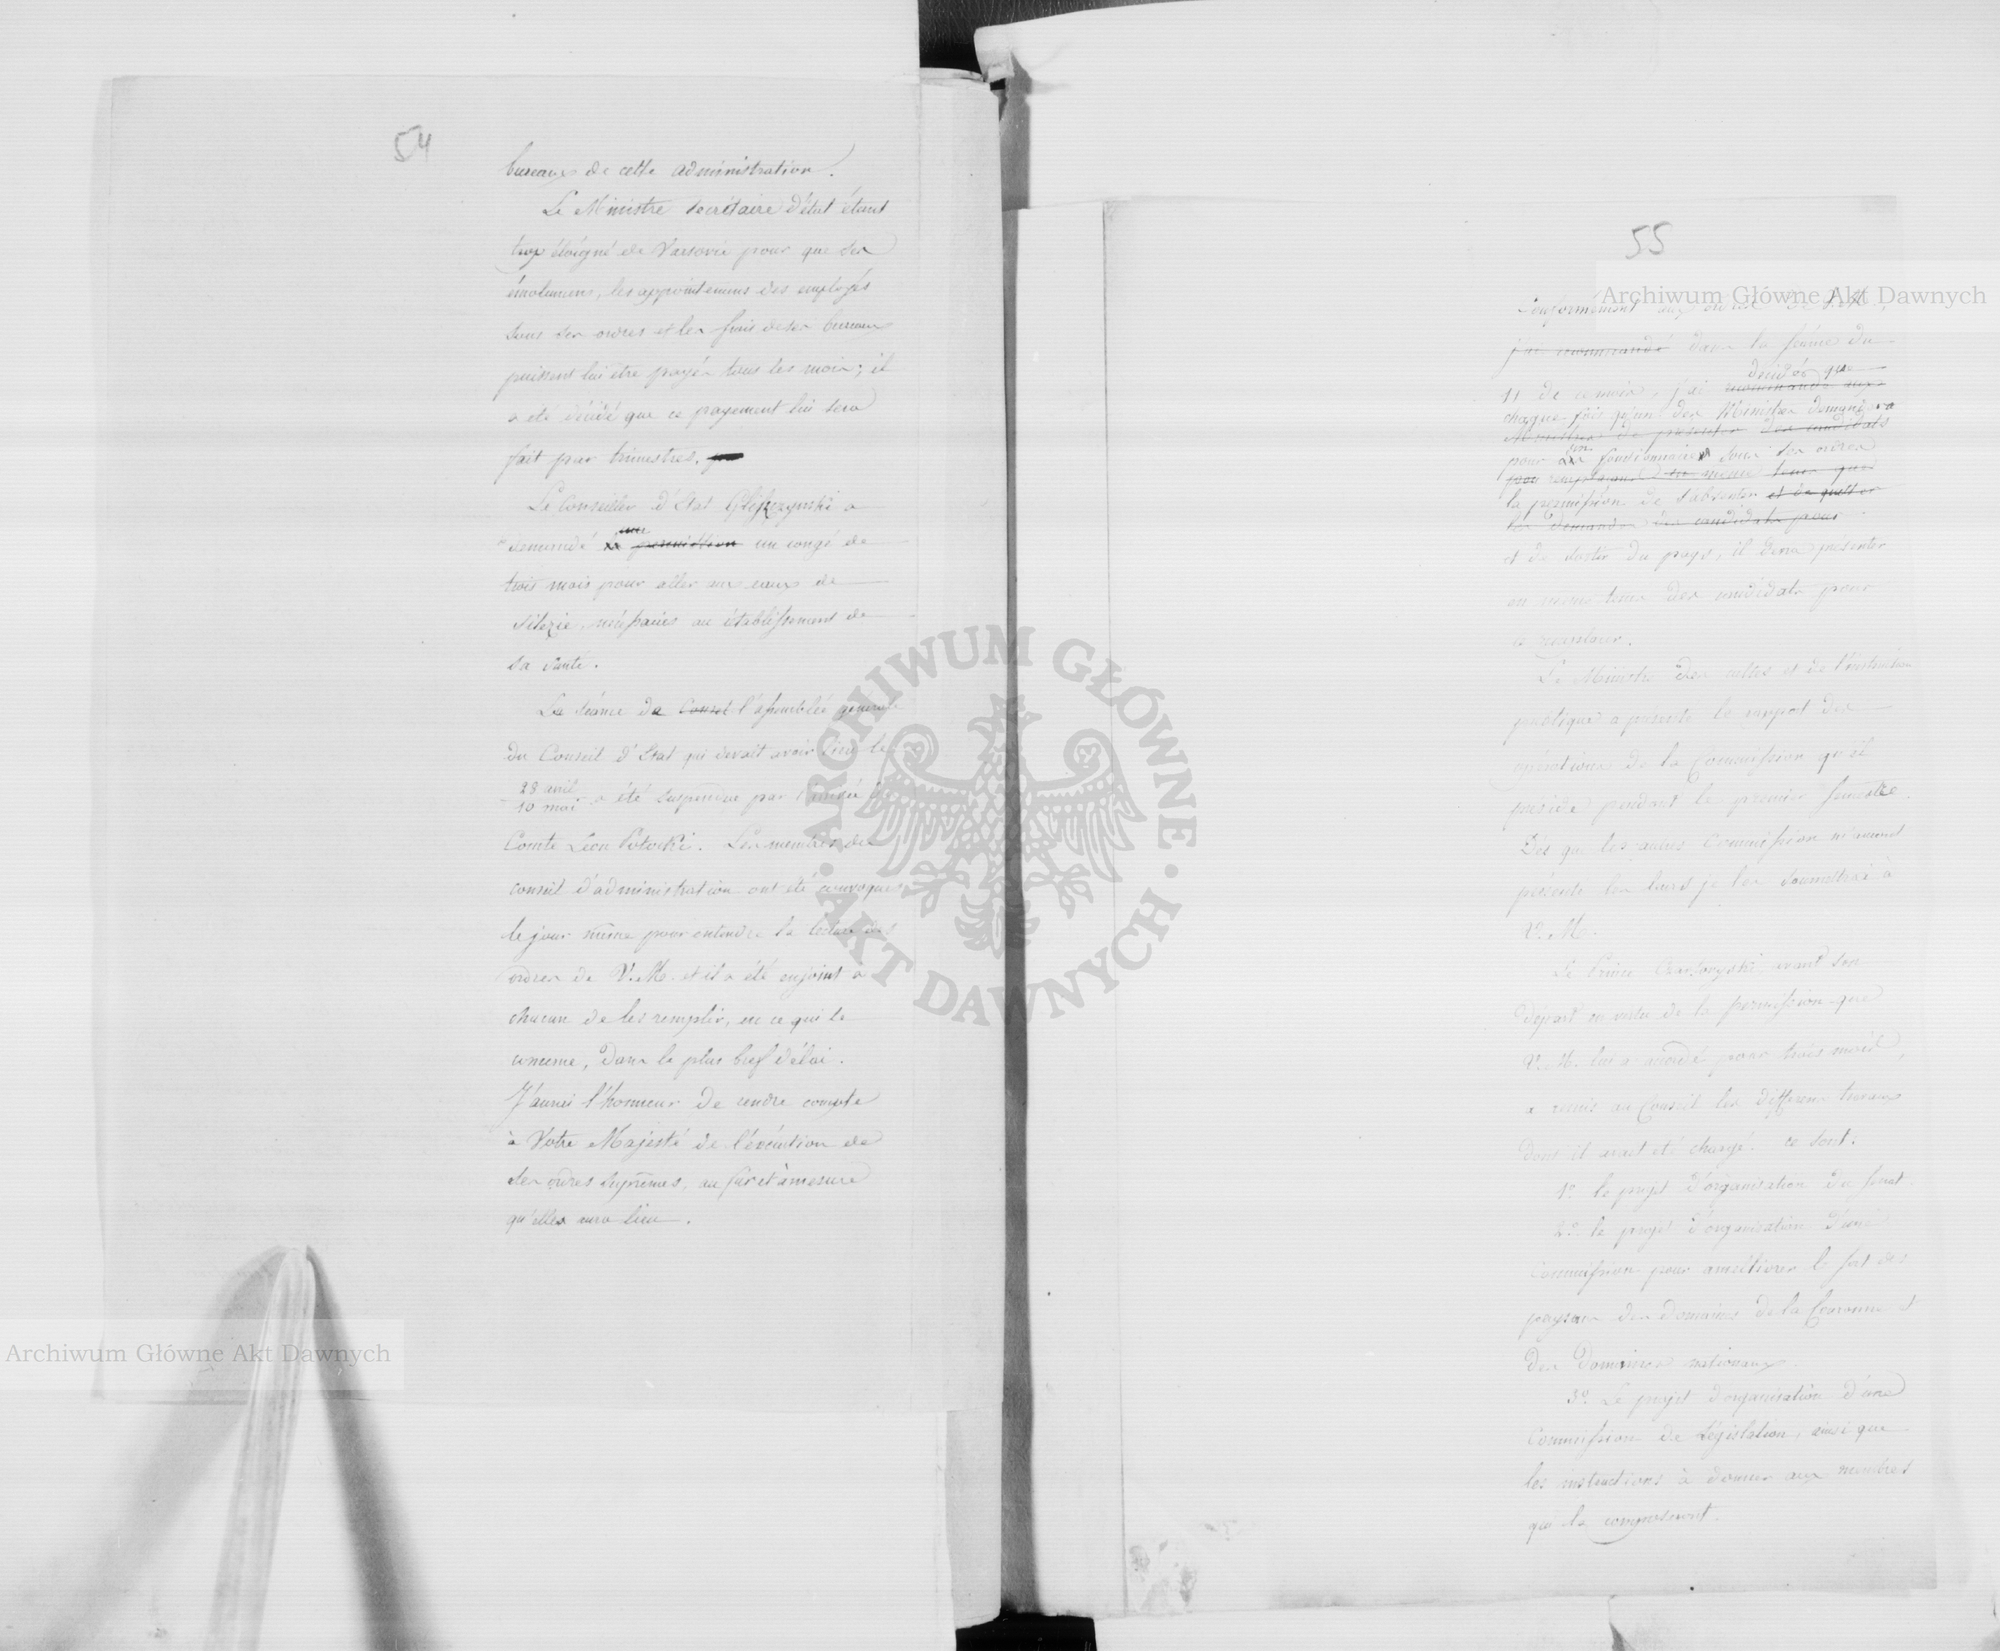 54
bureaux de cette administration.
Le Ministre Secrétaire d'état étant
trop éloigné de Varsovie pour que ses
émolumens, les appointemens des employés
sous ses ordres et les frais de ses bureaux
puissent lui être payés tous les mois; il
a été décidé que ce payement lui sera
fait par trimestres.
Le Conseiller d'Etat Gliszczynski a
demandé un congé de
trois mois pour aller aux eaux de
Silezie, nécessaires au établissement de
sa santé.
La Séance de Conseil l'assemblée générale
du Conseil d'Etat qui devait avoir lieu le
28 avril
10 mai a été suspendue par l'arrivée du
Comte Léon Potocki. Les membres du
conseil d'administration ont été convoqués
le jour même pour entendre la lecture des
ordres de V. M. et il a été enjoint à
chacun de les remplir, en ce qui le
concerne, dans le plus bref délai.
J'aurai l'honneur de rendre compte
à Votre Majesté de l'exécution de
ses ordres suprêmes, au fur et à mesure
qu'elles aura lieu.
55
Conformément aux ordres de V. M.
j'ai recommandé dans la séance du
11 de ce mois, j'ai recommandé aux
décidés que
chaque fois qu'un des Ministres demandera
Ministres de présenter des candidats
pour un fonctionnaire sous ses ordres
pour remplacer en même tems que
la permission de s'absenter et de quitter
les demandes des candidats pour
et de sortir du pays, il devra présenter
en même tems des candidats pour
le remplacer.
Le Ministre des cultes et de l'instruction
publique a présenté le rapport des
opérations de la Commission qu'il
préside pendant le premier semestre.
Dès que les autres Commissions m'auront
présenté les leurs je les soumettrai à
V. M.
Le Prince Czartoryski avant son
départ en vertu de la permission que
V. M. lui a accordé pour trois mois,
a remis au Conseil les différens travaux
dont il avait été chargé. ce sont:
1º le projet d'organisation du Senat.
2º le projet d'organisation d'une
Commission pour améliorer le sort des
paysans des domaines de la Couronne et
des Domaines nationaux.
3º Le projet d'organisation d'une
Commission de Législation, ainsi que
les instructions à donner aux membres
qui la composeront.
Archiwum Główne Akt Dawnych
Archiwum Główne Akt Dawnych
ARCHIWUM GŁÓWNE
· AKT DAWNYCH ·